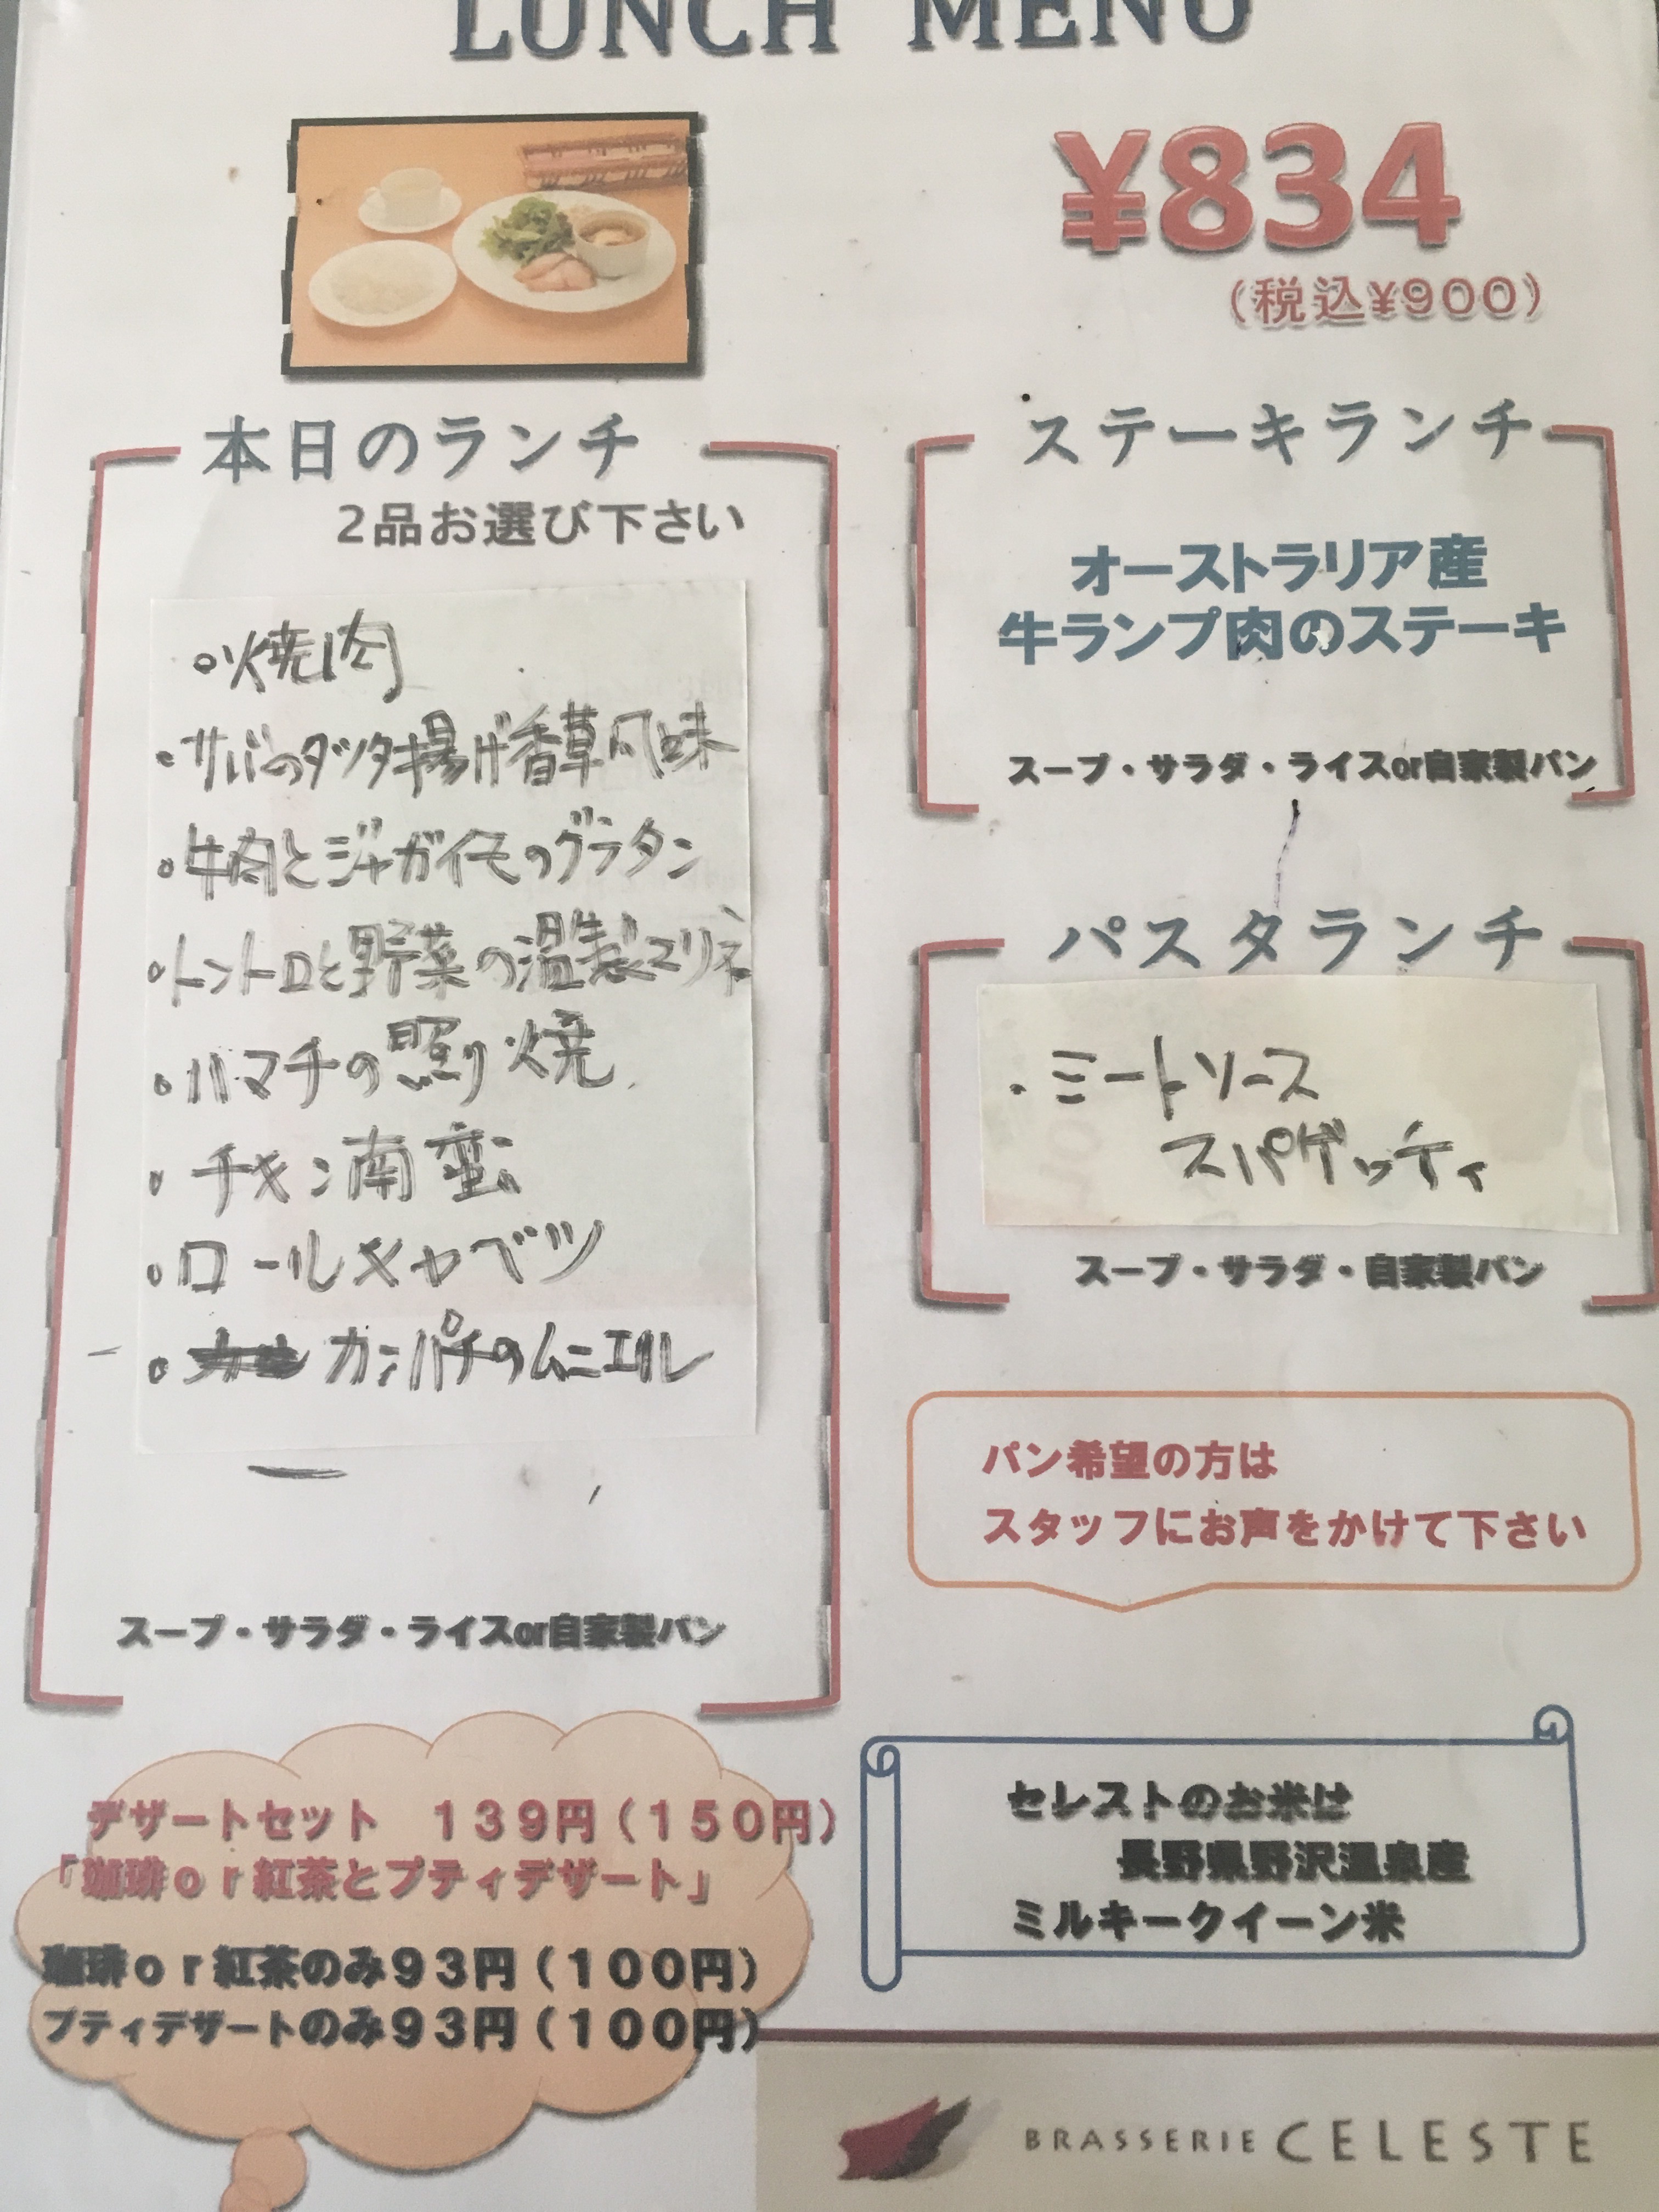 LUNCH MENU
¥834
(税込¥900)
本日のランチ
2品お選び下さい
・焼肉
・サバのタツタ揚げ香草風味
・牛肉とジャガイモのグラタン
・トントロと野菜の温製マリネ
・ハマチの照り焼
・チキン南蛮
・ロールキャベツ
・カンパチのムニエル
スープ・サラダ・ライスor自家製パン
ステーキランチ
オーストラリア産
牛ランプ肉のステーキ
スープ・サラダ・ライスor自家製パン
パスタランチ
・ミートソース
スパゲッティ
スープ・サラダ・自家製パン
パン希望の方は
スタッフにお声をかけて下さい
デザートセット　139円(150円)
「珈琲or紅茶とプティデザート」
珈琲or紅茶のみ93円(100円)
プティデザートのみ93円(100円)
セレストのお米は
長野県野沢温泉産
ミルキークイーン米
BRASSERIE CELESTE